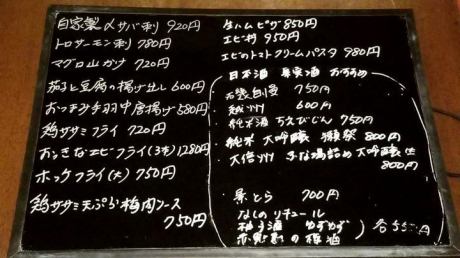 自家製〆サバ刺 920円
トロサーモン刺 780円
マグロ山かけ 720円
茄子と豆腐の揚げ出し 600円
おつまみ手羽中唐揚げ 580円
鶏ササミフライ 720円
おっきなエビフライ(3本) 1280円
ホッケフライ(大) 750円
鶏ササミ天ぷら梅肉ソース
750円
生ハムピザ 850円
エビ 950円
エビのトマトクリームパスタ 980円
日本酒 果実酒 おすすめ
自慢 750円
越州 600円
純米酒 ちえびじん 750円
純米 大吟醸 獺祭 800円
大信州 ふな場詰め 大吟醸
800円
700円
なしのリキュール
柚子酒 ゆずかず
の梅酒
各550円